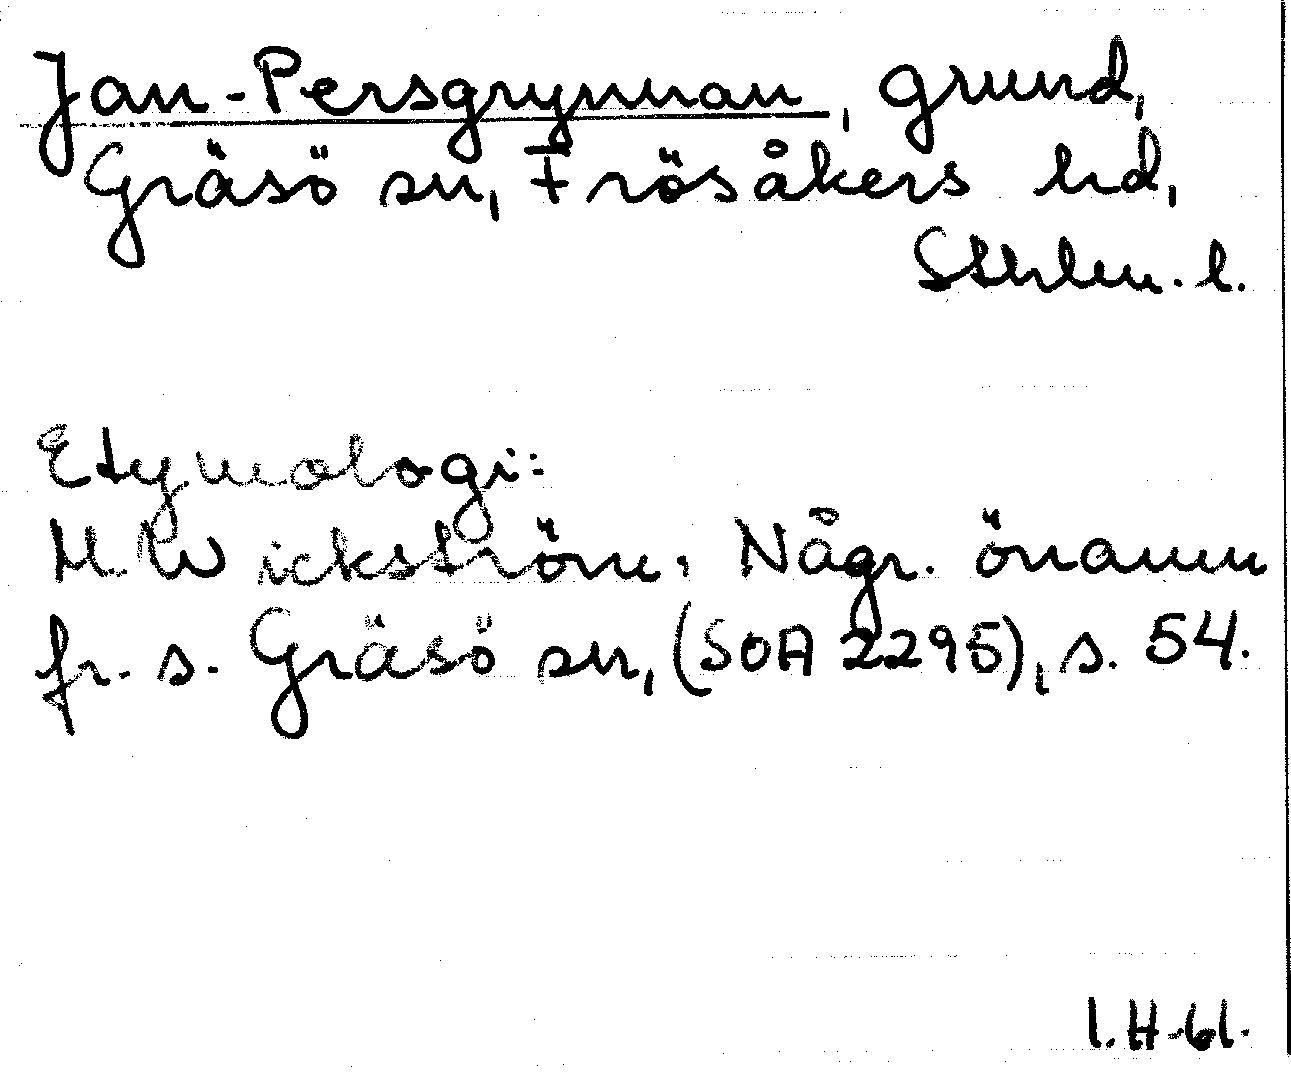 Jan-Persgrynnan, grund,
Gräsö sn, Frösåkers hd,
Sthlm. l.
Etymologi:
M. Wickström, Någr. önamn
fr. s. Gräsö sn, (SOA 2295), s. 54.
I.H-61.